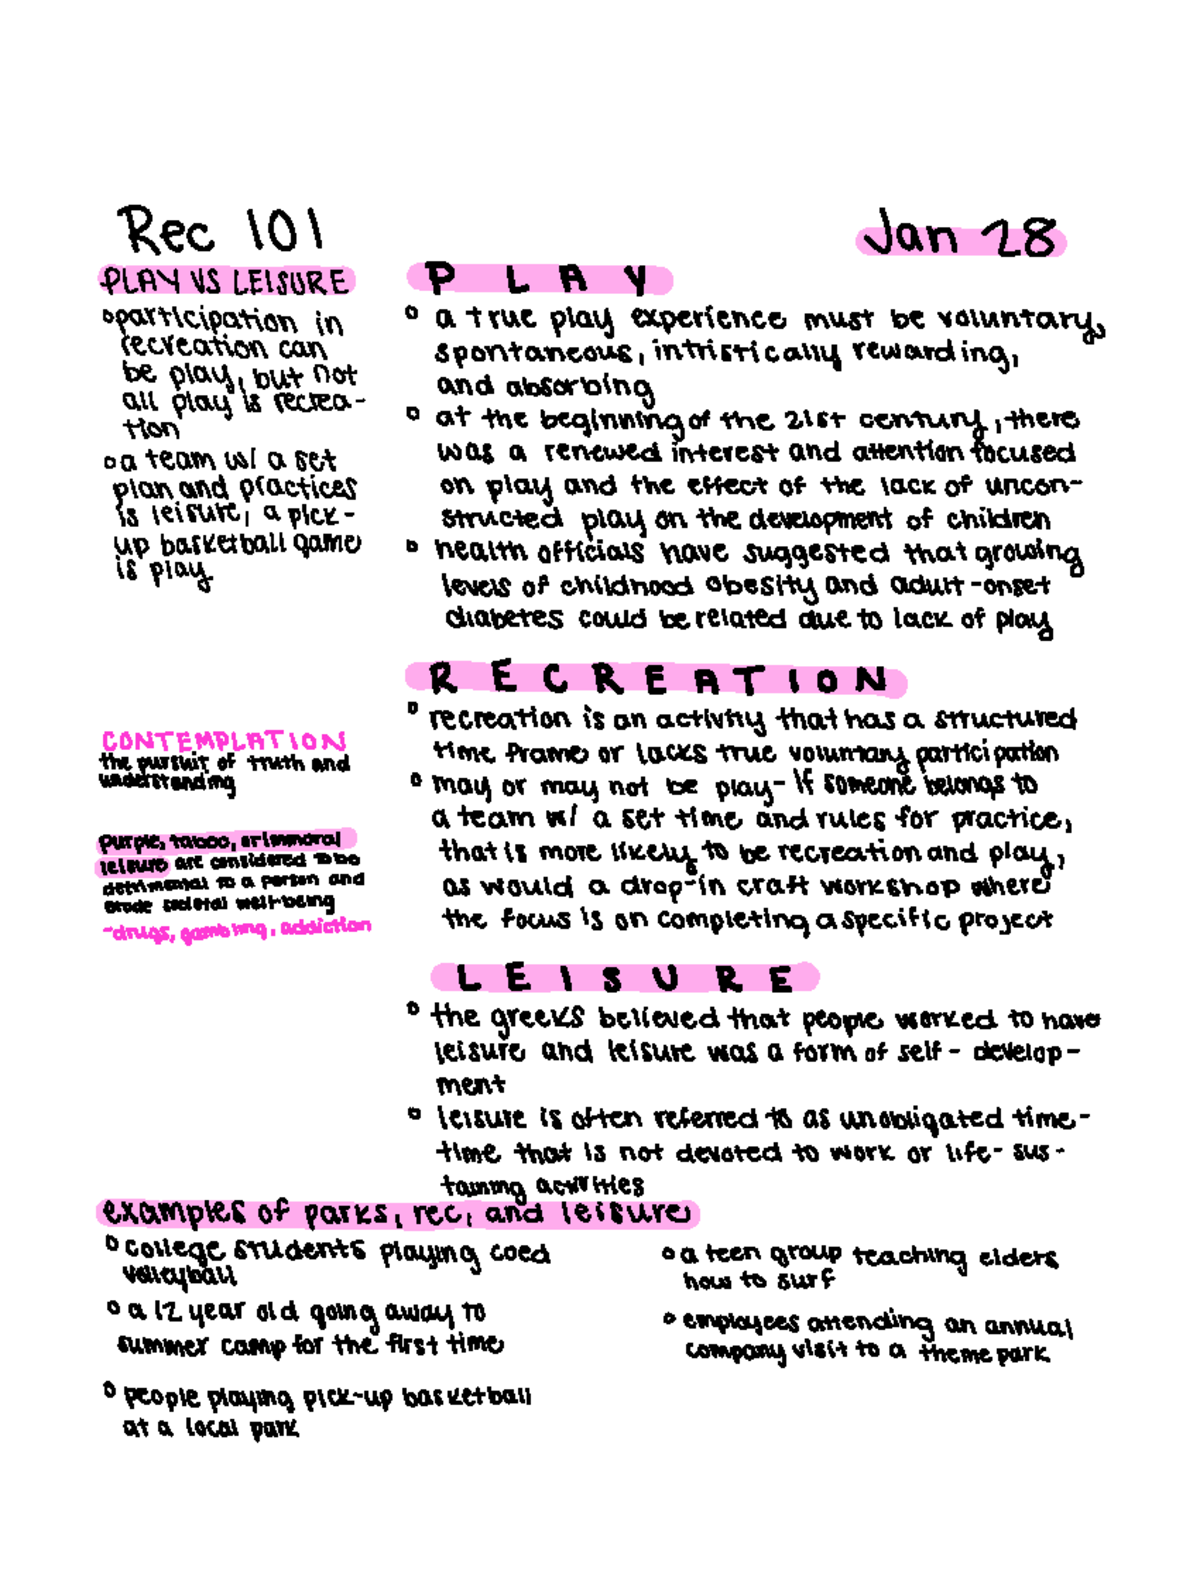 Rec 101
Jan 28
PLAY VS LEISURE
participation in
recreation can
be play, but not
all play is recrea-
tion
a team w/ a set
plan and practices
is leisure, a pick-
up basketball game
is play
CONTEMPLATION
the pursuit of truth and
understanding
purple, taboo, or immoral
leisure are considered to be
detrimental to a person and
erode societal well-being
-drugs, gambling, addiction
PLAY
a true play experience must be voluntary,
spontaneous, intristically rewarding,
and absorbing
at the beginning of the 21st century, there
was a renewed interest and attention focused
on play and the effect of the lack of uncon-
structed play on the development of children
health officials have suggested that growing
levels of childhood obesity and adult-onset
diabetes could be related due to lack of play
RECREATION
recreation is an activity that has a structured
time frame or lacks true voluntary participation
may or may not be play- if someone belongs to
a team w/ a set time and rules for practice,
that is more likely to be recreation and play,
as would a drop-in craft workshop where
the focus is on completing a specific project
LEISURE
the greeks believed that people worked to have
leisure and leisure was a form of self-develop-
ment
leisure is often referred to as unobligated time-
time that is not devoted to work or life-sus-
taining activities
examples of parks, rec, and leisure
college students playing coed
volleyball
a 12 year old going away to
summer camp for the first time
people playing pick-up basketball
at a local park
a teen group teaching elders
how to surf
employees attending an annual
company visit to a theme park